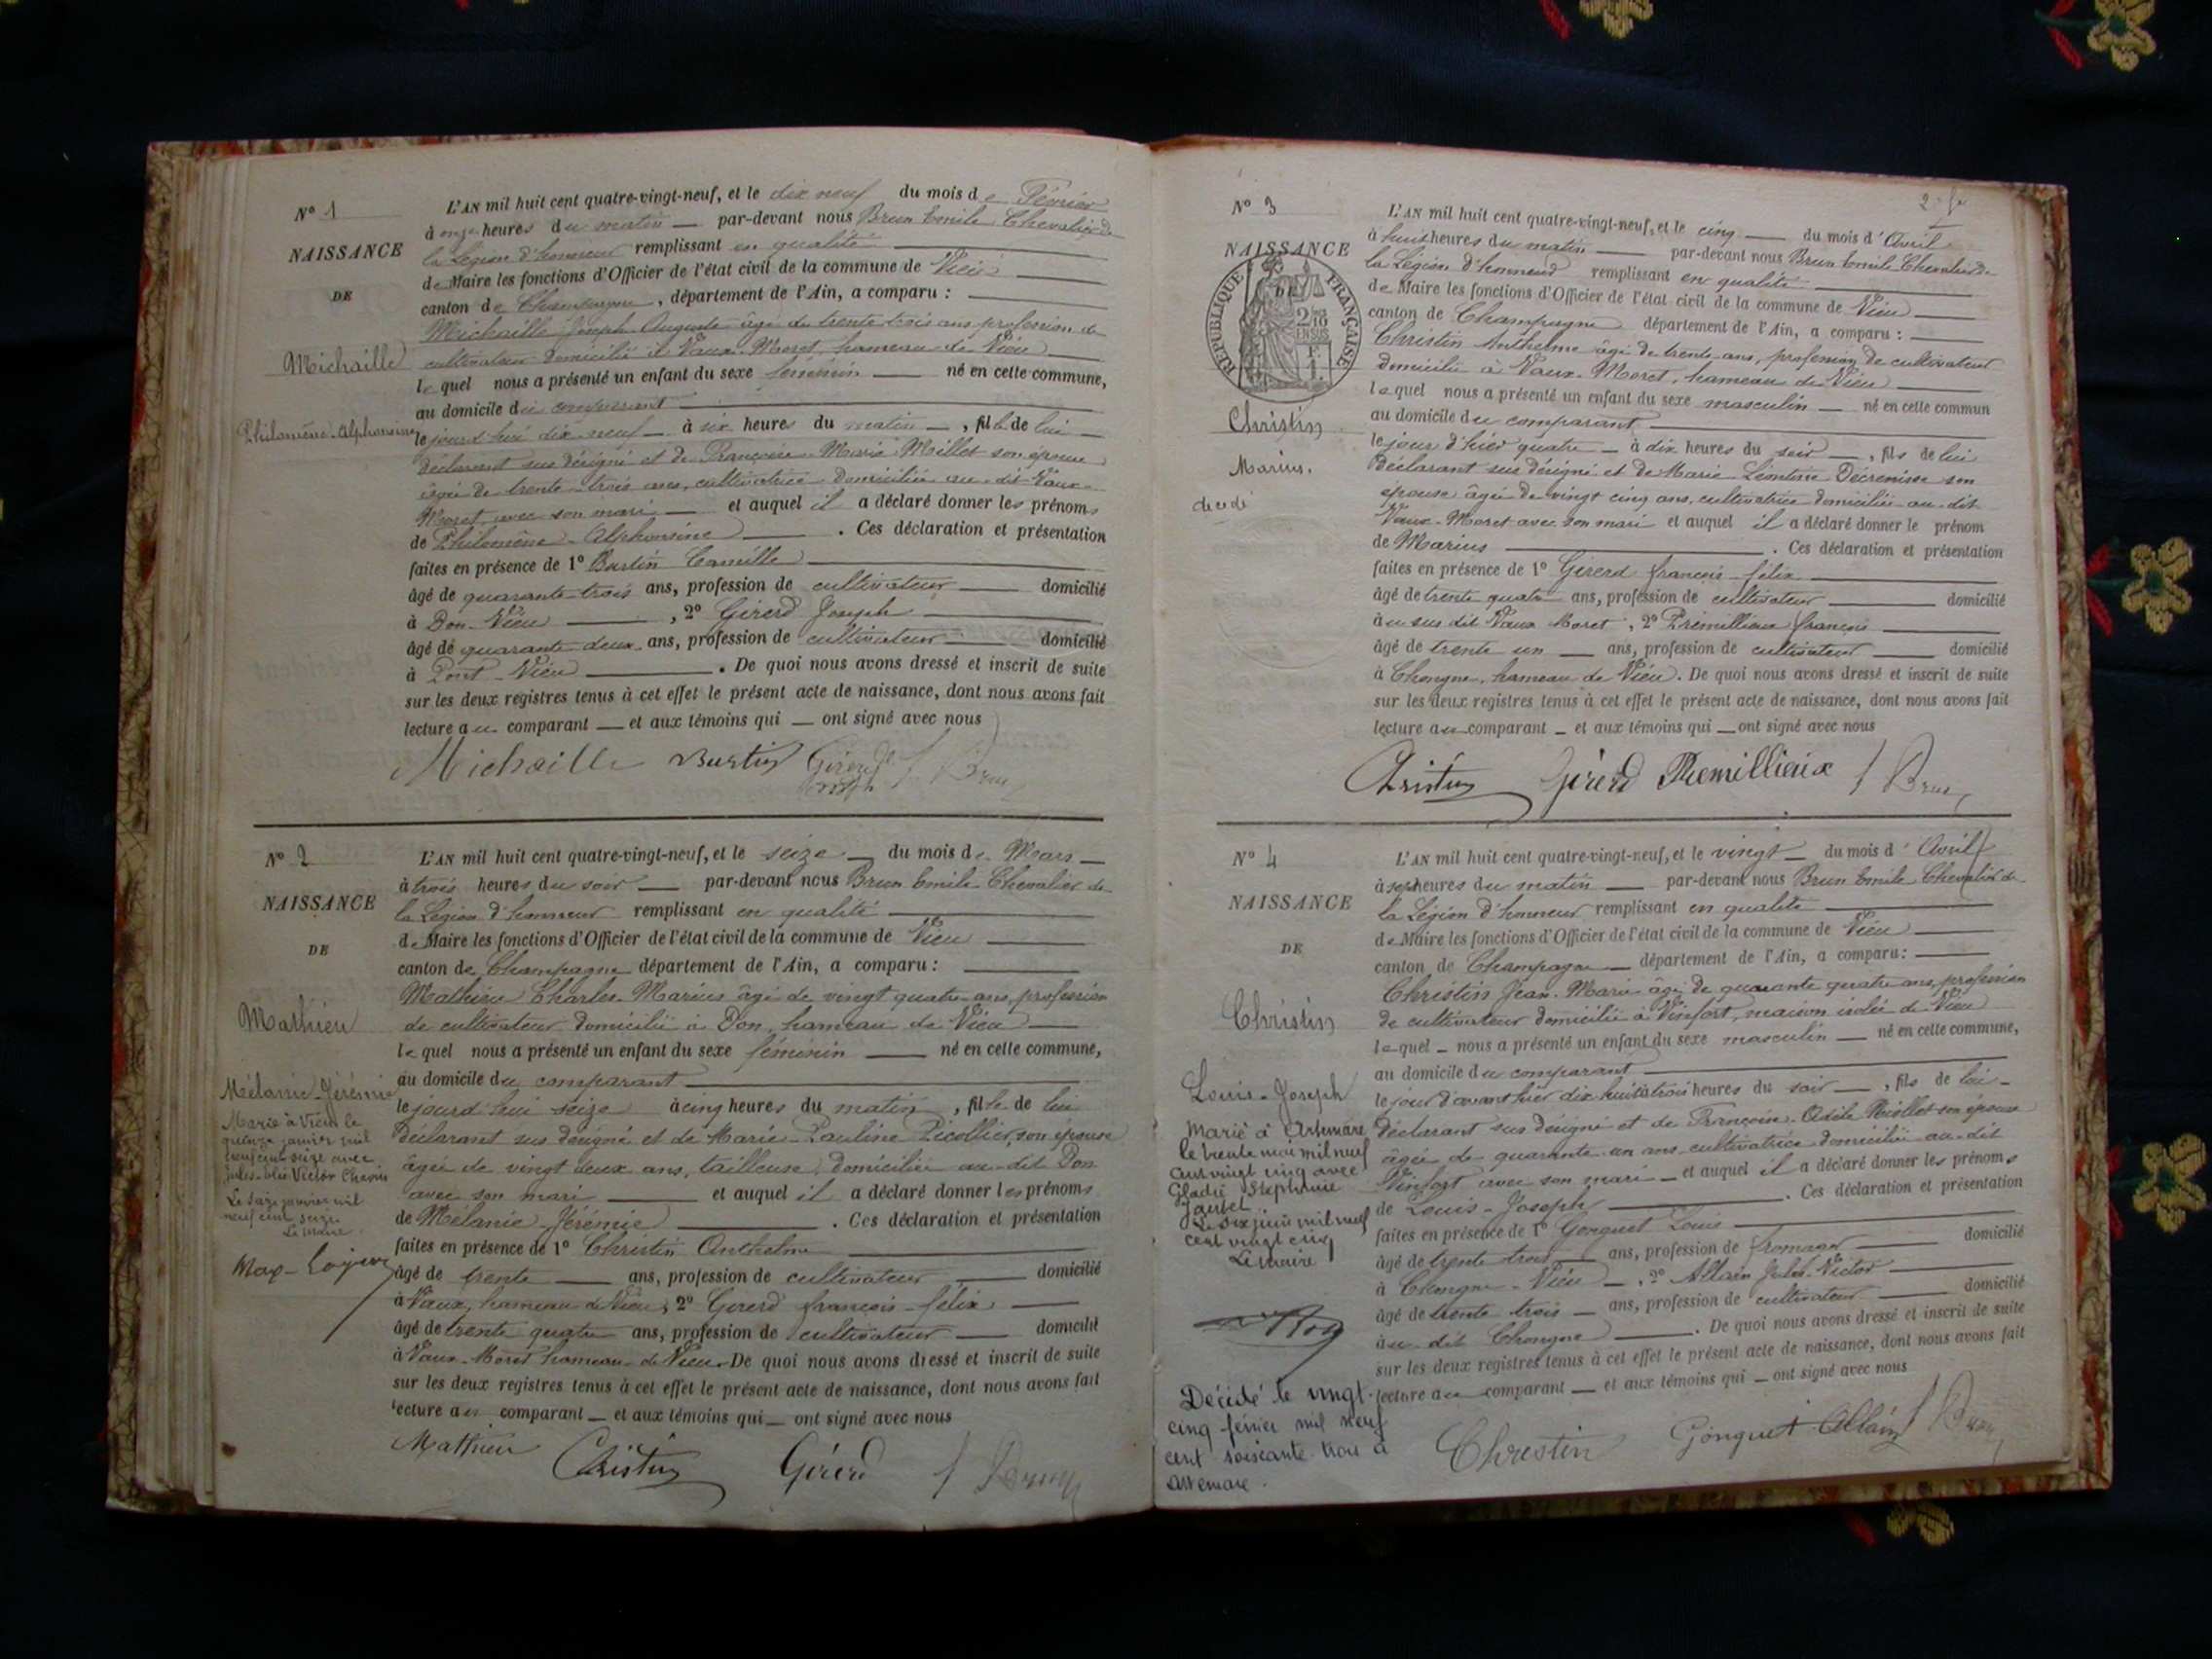 N° 1
NAISSANCE
DE
Michaille
Philomène-Alphonsine
L'AN mil huit cent quatre-vingt-neuf, et le dix neuf du mois de Février
à onze heures du matin par-devant nous Brun Emile Chevalier de
la Légion d'honneur remplissant en qualité
de Maire les fonctions d'Officier de l'état civil de la commune de Vieu
canton de Champagne, département de l'Ain, a comparu :
Michaille Joseph Auguste âgé de trente trois ans profession de
cultivateur domicilié à Vaux-Moret, hameau de Vieu
lequel nous a présenté un enfant du sexe féminin né en cette commune,
au domicile du comparant
le jourd'hui dix neuf à six heures du matin, fille de lui
déclarant sus désigné et de Françoise Marie Millet son épouse
âgée de trente-trois ans, cultivatrice domiciliée au dit Vaux-
Moret avec son mari et auquel il a déclaré donner les prénoms
de Philomène-Alphonsine. Ces déclaration et présentation
faites en présence de 1° Burtin Camille
âgé de quarante-trois ans, profession de cultivateur domicilié
à Don-Vieu, 2° Gérerd Joseph
âgé de quarante deux ans, profession de cultivateur domicilié
à Pont-Vieu. De quoi nous avons dressé et inscrit de suite
sur les deux registres tenus à cet effet le présent acte de naissance, dont nous avons fait
lecture au comparant et aux témoins qui ont signé avec nous
Michaille Burtin Gérerd Joseph Brun
N° 2
NAISSANCE
DE
Mathieu
Mélanie-Jérémie
Marié à Vieu le
quinze janvier mil
neuf cent seize avec
Victor
Le seize janvier mil
neuf cent seize
Le Maire
L'AN mil huit cent quatre-vingt-neuf, et le seize du mois de Mars
à trois heures du soir par-devant nous Brun Emile Chevalier de
la Légion d'honneur remplissant en qualité
de Maire les fonctions d'Officier de l'état civil de la commune de Vieu
canton de Champagne département de l'Ain, a comparu :
Mathieu Charles-Marius âgé de vingt quatre ans, profession
de cultivateur domicilié à Don, hameau de Vieu
lequel nous a présenté un enfant du sexe féminin né en cette commune,
au domicile du comparant
le jourd'hui seize à cinq heures du matin, fille de lui
déclarant sus désigné et de Marie-Pauline Picollier, son épouse
âgée de vingt deux ans, tailleuse, domiciliée au dit Don
avec son mari et auquel il a déclaré donner les prénoms
de Mélanie-Jérémie. Ces déclaration et présentation
faites en présence de 1° Christin Anthelme
âgé de trente ans, profession de cultivateur domicilié
à Vaux, hameau de Vieu, 2° Gérerd françois-félix
âgé de trente quatre ans, profession de cultivateur domicilié
à Vaux-Moret hameau de Vieu. De quoi nous avons dressé et inscrit de suite
sur les deux registres tenus à cet effet le présent acte de naissance, dont nous avons fait
lecture au comparant et aux témoins qui ont signé avec nous
Mathieu Christin Gérerd Brun
2
N° 3
NAISSANCE
DE
REPUBLIQUE FRANÇAISE
Christin
Marius.
décédé
L'AN mil huit cent quatre-vingt-neuf, et le cinq du mois d'Avril
à huit heures du matin par-devant nous Brun Emile Chevalier de
la Légion d'honneur remplissant en qualité
de Maire les fonctions d'Officier de l'état civil de la commune de Vieu
canton de Champagne département de l'Ain, a comparu :
Christin Anthelme âgé de trente ans, profession de cultivateur
domicilié à Vaux-Moret, hameau de Vieu
lequel nous a présenté un enfant du sexe masculin né en cette commun
au domicile du comparant
le jour d'hier quatre à dix heures du soir, fils de lui
déclarant sus désigné et de Marie Léontine Décrenisse son
épouse âgée de vingt cinq ans, cultivatrice domiciliée au dit
Vaux-Moret avec son mari et auquel il a déclaré donner le prénom
de Marius. Ces déclaration et présentation
faites en présence de 1° Gérerd françois-félix
âgé de trente quatre ans, profession de cultivateur domicilié
au sus dit Vaux Moret, 2° Prémillieux françois
âgé de trente un ans, profession de cultivateur domicilié
à Chongne, hameau de Vieu. De quoi nous avons dressé et inscrit de suite
sur les deux registres tenus à cet effet le présent acte de naissance, dont nous avons fait
lecture au comparant et aux témoins qui ont signé avec nous
Christin Gérerd Premillieux Brun
N° 4
NAISSANCE
DE
Christin
Louis-Joseph
Marié à Artemare
le trente mai mil neuf
cent vingt cinq avec
Stéphanie
Le six juin mil neuf
cent vingt cinq
Le Maire
Décédé le vingt-
cinq février mil neuf
cent soixante trois à
Artemare.
L'AN mil huit cent quatre-vingt-neuf, et le vingt du mois d'Avril
à sept heures du matin par-devant nous Brun Emile Chevalier de
la Légion d'honneur remplissant en qualité
de Maire les fonctions d'Officier de l'état civil de la commune de Vieu
canton de Champagne département de l'Ain, a comparu :
Christin Jean-Marie âgé de quarante quatre ans, profession
de cultivateur domicilié à Vinfort, maison isolée de Vieu
lequel nous a présenté un enfant du sexe masculin né en cette commune,
au domicile du comparant
le jour d'avant hier dix huit à trois heures du soir, fils de lui
déclarant sus désigné et de Françoise-Adèle Miollet son épouse
âgée de quarante un ans cultivatrice domiciliée au dit
Vinfort avec son mari et auquel il a déclaré donner les prénoms
de Louis-Joseph. Ces déclaration et présentation
faites en présence de 1° Gonguet Louis
âgé de trente trois ans, profession de fromager domicilié
à Chongne-Vieu, 2° Allain Jules-Victor
âgé de trente trois ans, profession de cultivateur domicilié
au dit Chongne. De quoi nous avons dressé et inscrit de suite
sur les deux registres tenus à cet effet le présent acte de naissance, dont nous avons fait
lecture au comparant et aux témoins qui ont signé avec nous
Christin Gonguet Allain Brun